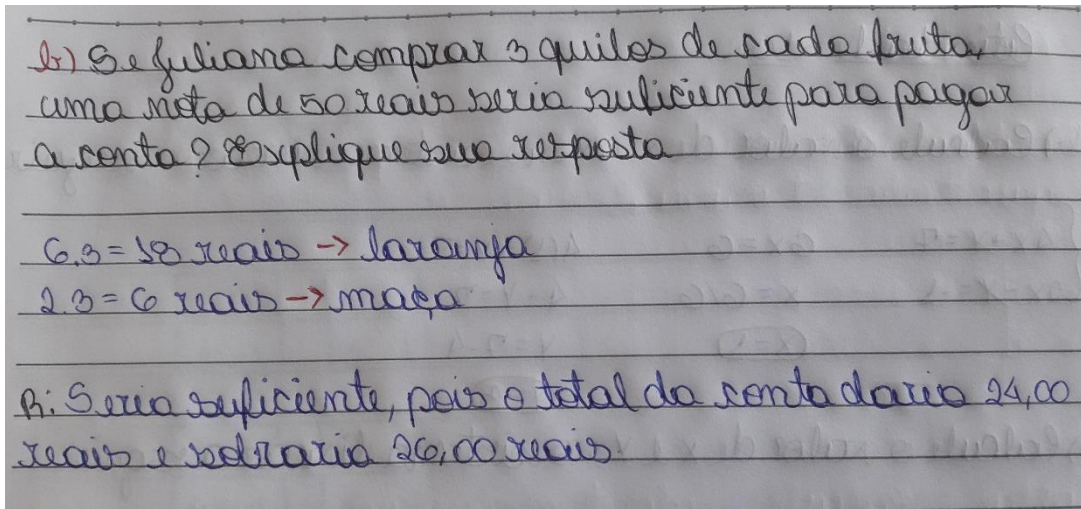 b) Se Juliana comprar 3 quilos de cada fruta,
uma nota de 50 reais seria suficiente para pagar
a conta? Explique sua resposta
6.3 = 18 reais → laranja
2.3 = 6 reais → maça
R: Seria suficiente, pois o total da conta daria 24,00
reais e sobraria 26,00 reais